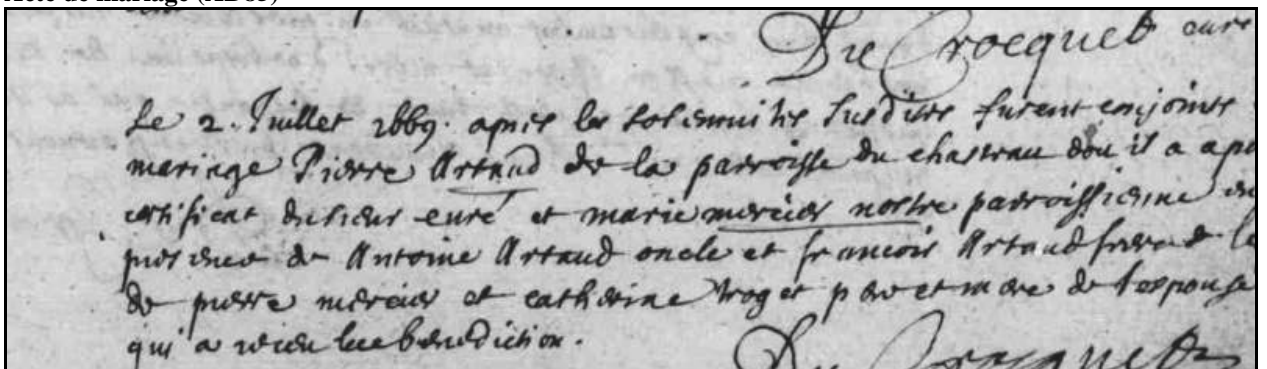 Acte de mariage (AD85)
Du Crocquet curé
Le 2. Juillet 1669. apres les solemnites susdites furent conjoints
mariage Pierre Artaud de la parroisse du chasteau dou il a apo
certificat du sieur curé et marie mercier nostre parroissienne en
presence de Antoine Artaud oncle et francois Artaud frere de l
de pierre mercier et catherine troget pere et mere de l'espouse
qui a receu la benediction.
Du Crocquet